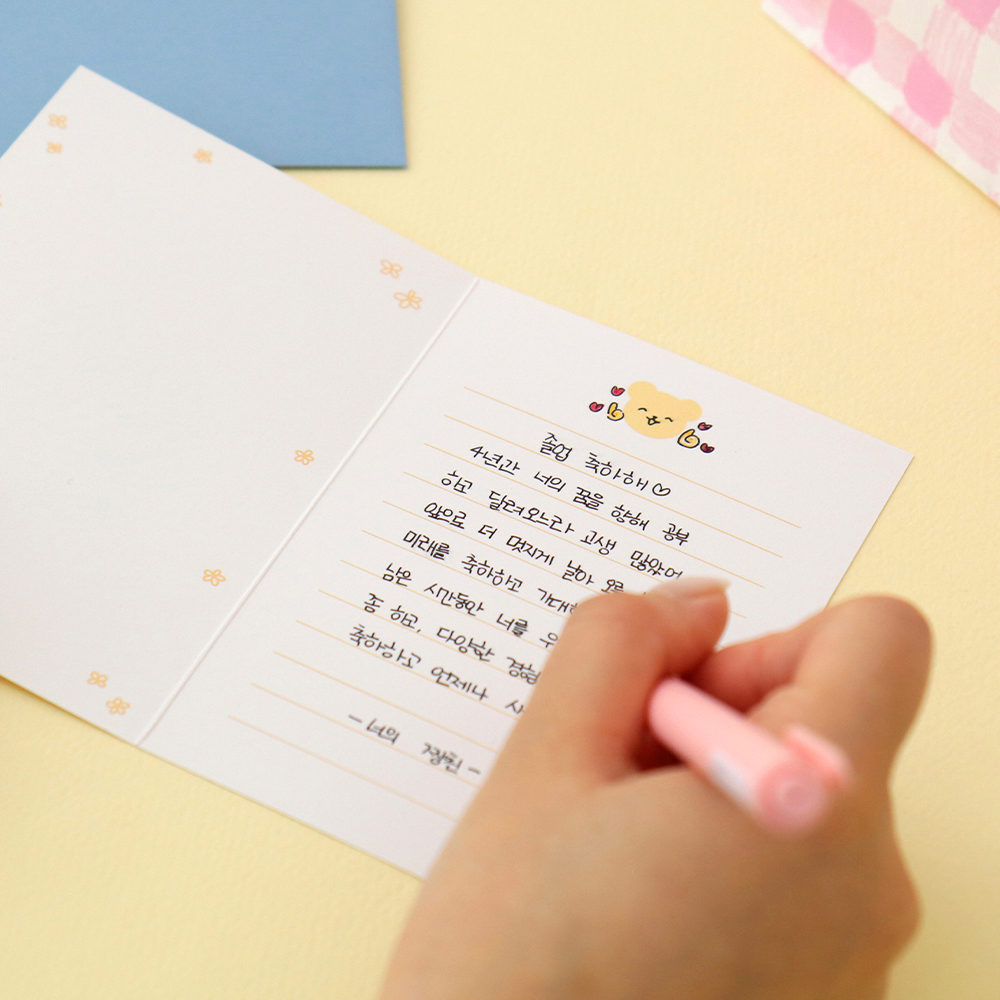 졸업 축하해♡
4년간 너의 꿈을 향해 공부
하고 달려오느라 고생 많았어
앞으로 더 멋지게 날아 오를
미래를 축하하고 기대
남은 시간동안 너를
좀 하고, 다양한 경험
축하하고 언제나
-너의 정원-